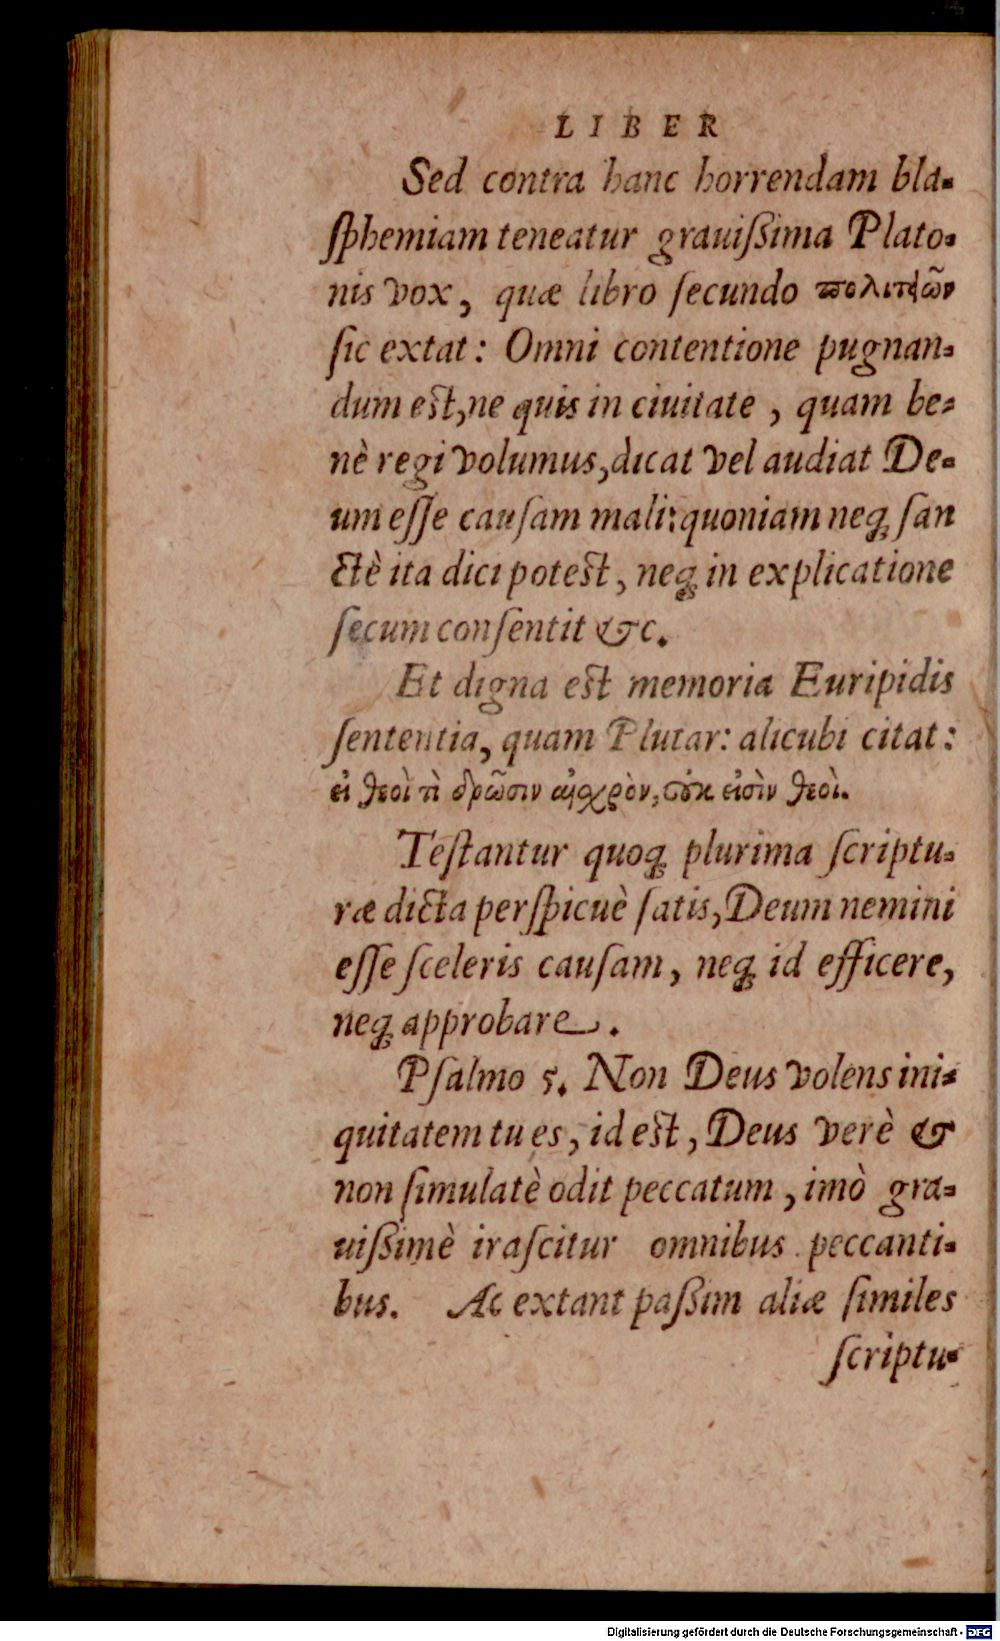 LIBER
Sed contra hanc horrendam bla-
ſphemiam teneatur grauiſsima Plato-
nis vox, quæ libro ſecundo πολιτειῶν
ſic extat: Omni contentione pugnan-
dum eſt, ne quis in ciuitate, quam be-
nè regi volumus, dicat vel audiat De-
um eſſe cauſam mali: quoniam neq; ſan
ctè ita dici poteſt, neq; in explicatione
ſecum conſentit &c.
Et digna eſt memoria Euripidis
ſententia, quam Plutar: alicubi citat:
εἰ θεοὶ τὶ δρῶσιν αἰσχρὸν, οὐκ εἰσὶν θεοὶ.
Teſtantur quoq; plurima ſcriptu-
ræ dicta perſpicuè ſatis, Deum nemini
eſſe ſceleris cauſam, neq; id efficere,
neq; approbare.
Pſalmo 5. Non Deus volens ini-
quitatem tu es, id eſt, Deus verè &
non ſimulatè odit peccatum, imò gra-
uiſsimè iraſcitur omnibus peccanti-
bus. Ac extant paſsim aliæ ſimiles
ſcriptu-
Digitalisierung gefördert durch die Deutsche Forschungsgemeinschaft - DFG